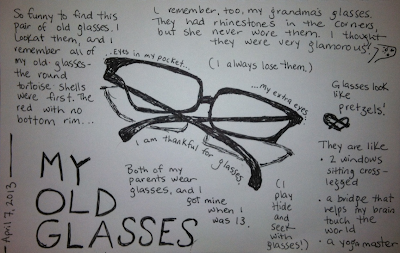 So funny to find this
pair of old glasses. I
look at them, and I
remember all of
my old glasses-
the round
tortoise shells
were first. The
red with no
bottom rim...
...Eyes in my pocket...
I remember, too, my grandma's glasses.
They had rhinestones in the corners,
but she never wore them. I thought
they were very glamorous!
(I always lose them.)
...my extra eyes.
Glasses look
like
pretzels!
I am thankful for glasses.
They are like
• 2 windows
sitting cross-
legged
• a bridge that
helps my brain
touch the
world
• a yoga master
Both of my
parents wear
glasses, and I
got mine
when I
was 13.
(I
play
Hide
and
Seek
with
glasses!)
MY
OLD
GLASSES
- April 7, 2013 -